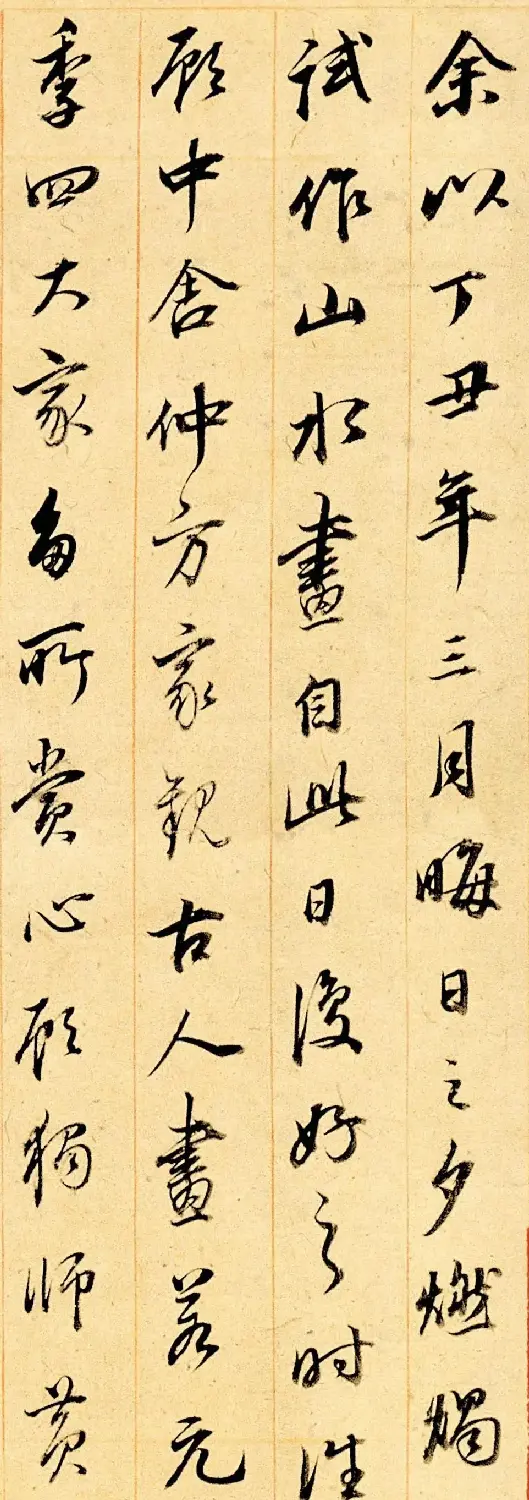 余以丁丑年三月晦日之夕燃燭
試作山水畫自此日復好之时往
顾中舍仲方家觀古人畫若元
季四大家多所賞心顾獨师黄